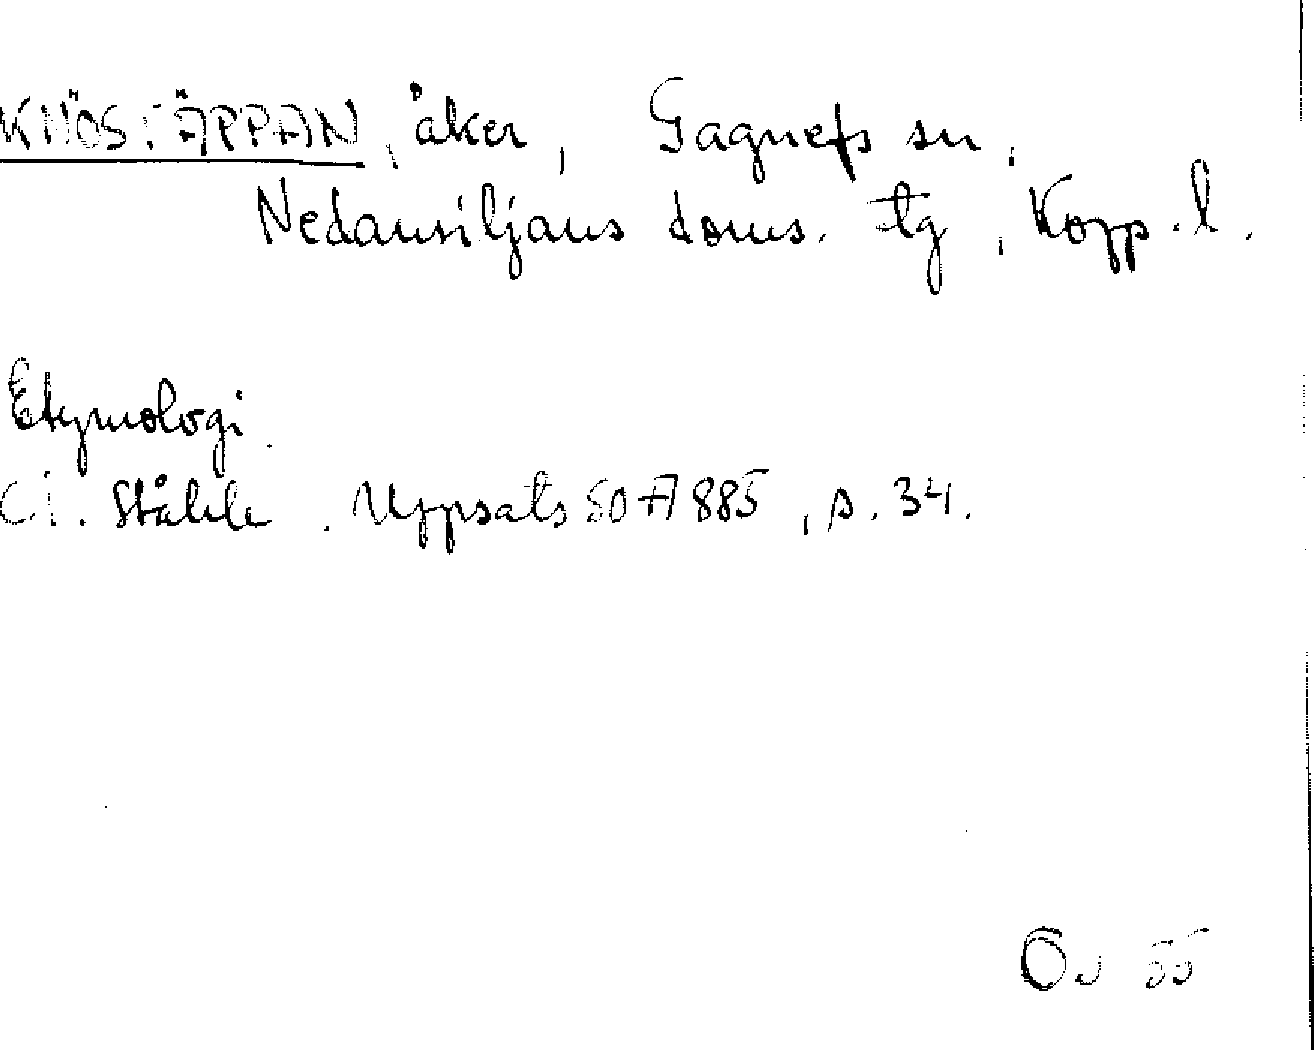 KNÖSTÄPPAN, åker, Gagnefs sn,
Nedansiljans doms. tg, Kopp. l.
Etymologi.
C.I. Ståhle. Uppsats SOFA 885, s. 34.
55